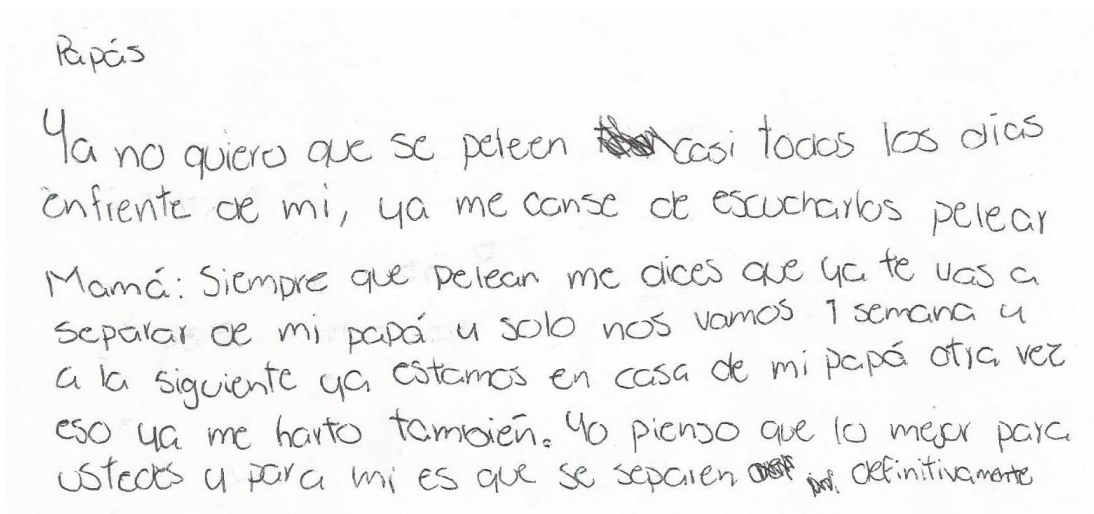 Papás
Ya no quiero que se peleen casi todos los dias
enfrente de mi, ya me canse de escucharlos pelear
Mamá: Siempre que pelean me dices que ya te vas a
separar de mi papá y solo nos vamos 1 semana y
a la siguiente ya estamos en casa de mi papá otra vez
eso ya me harto también. Yo pienso que lo mejor para
ustedes y para mi es que se separen definitivamente